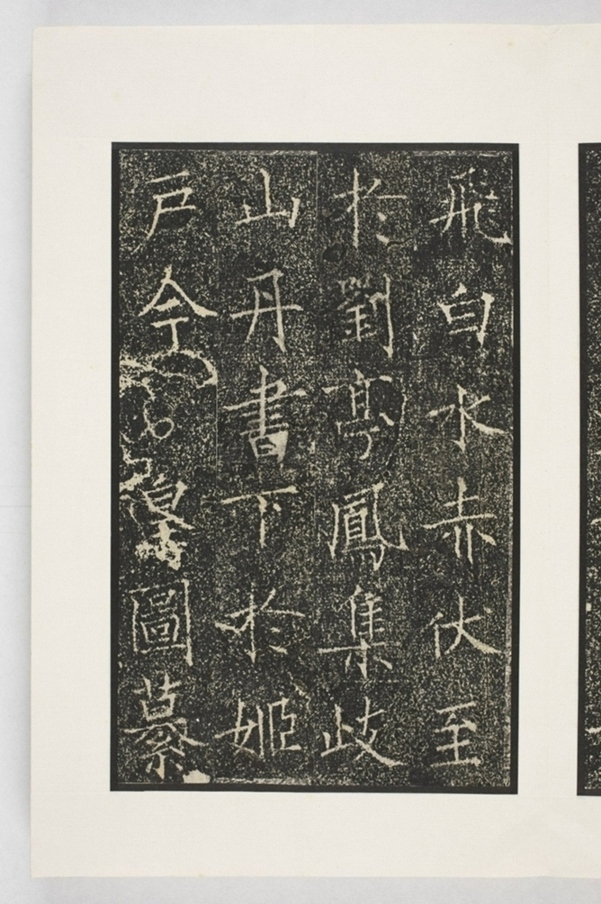 飛白水赤伏至
於劉亭鳳集岐
山丹書下於姬
戶今皇圖纂